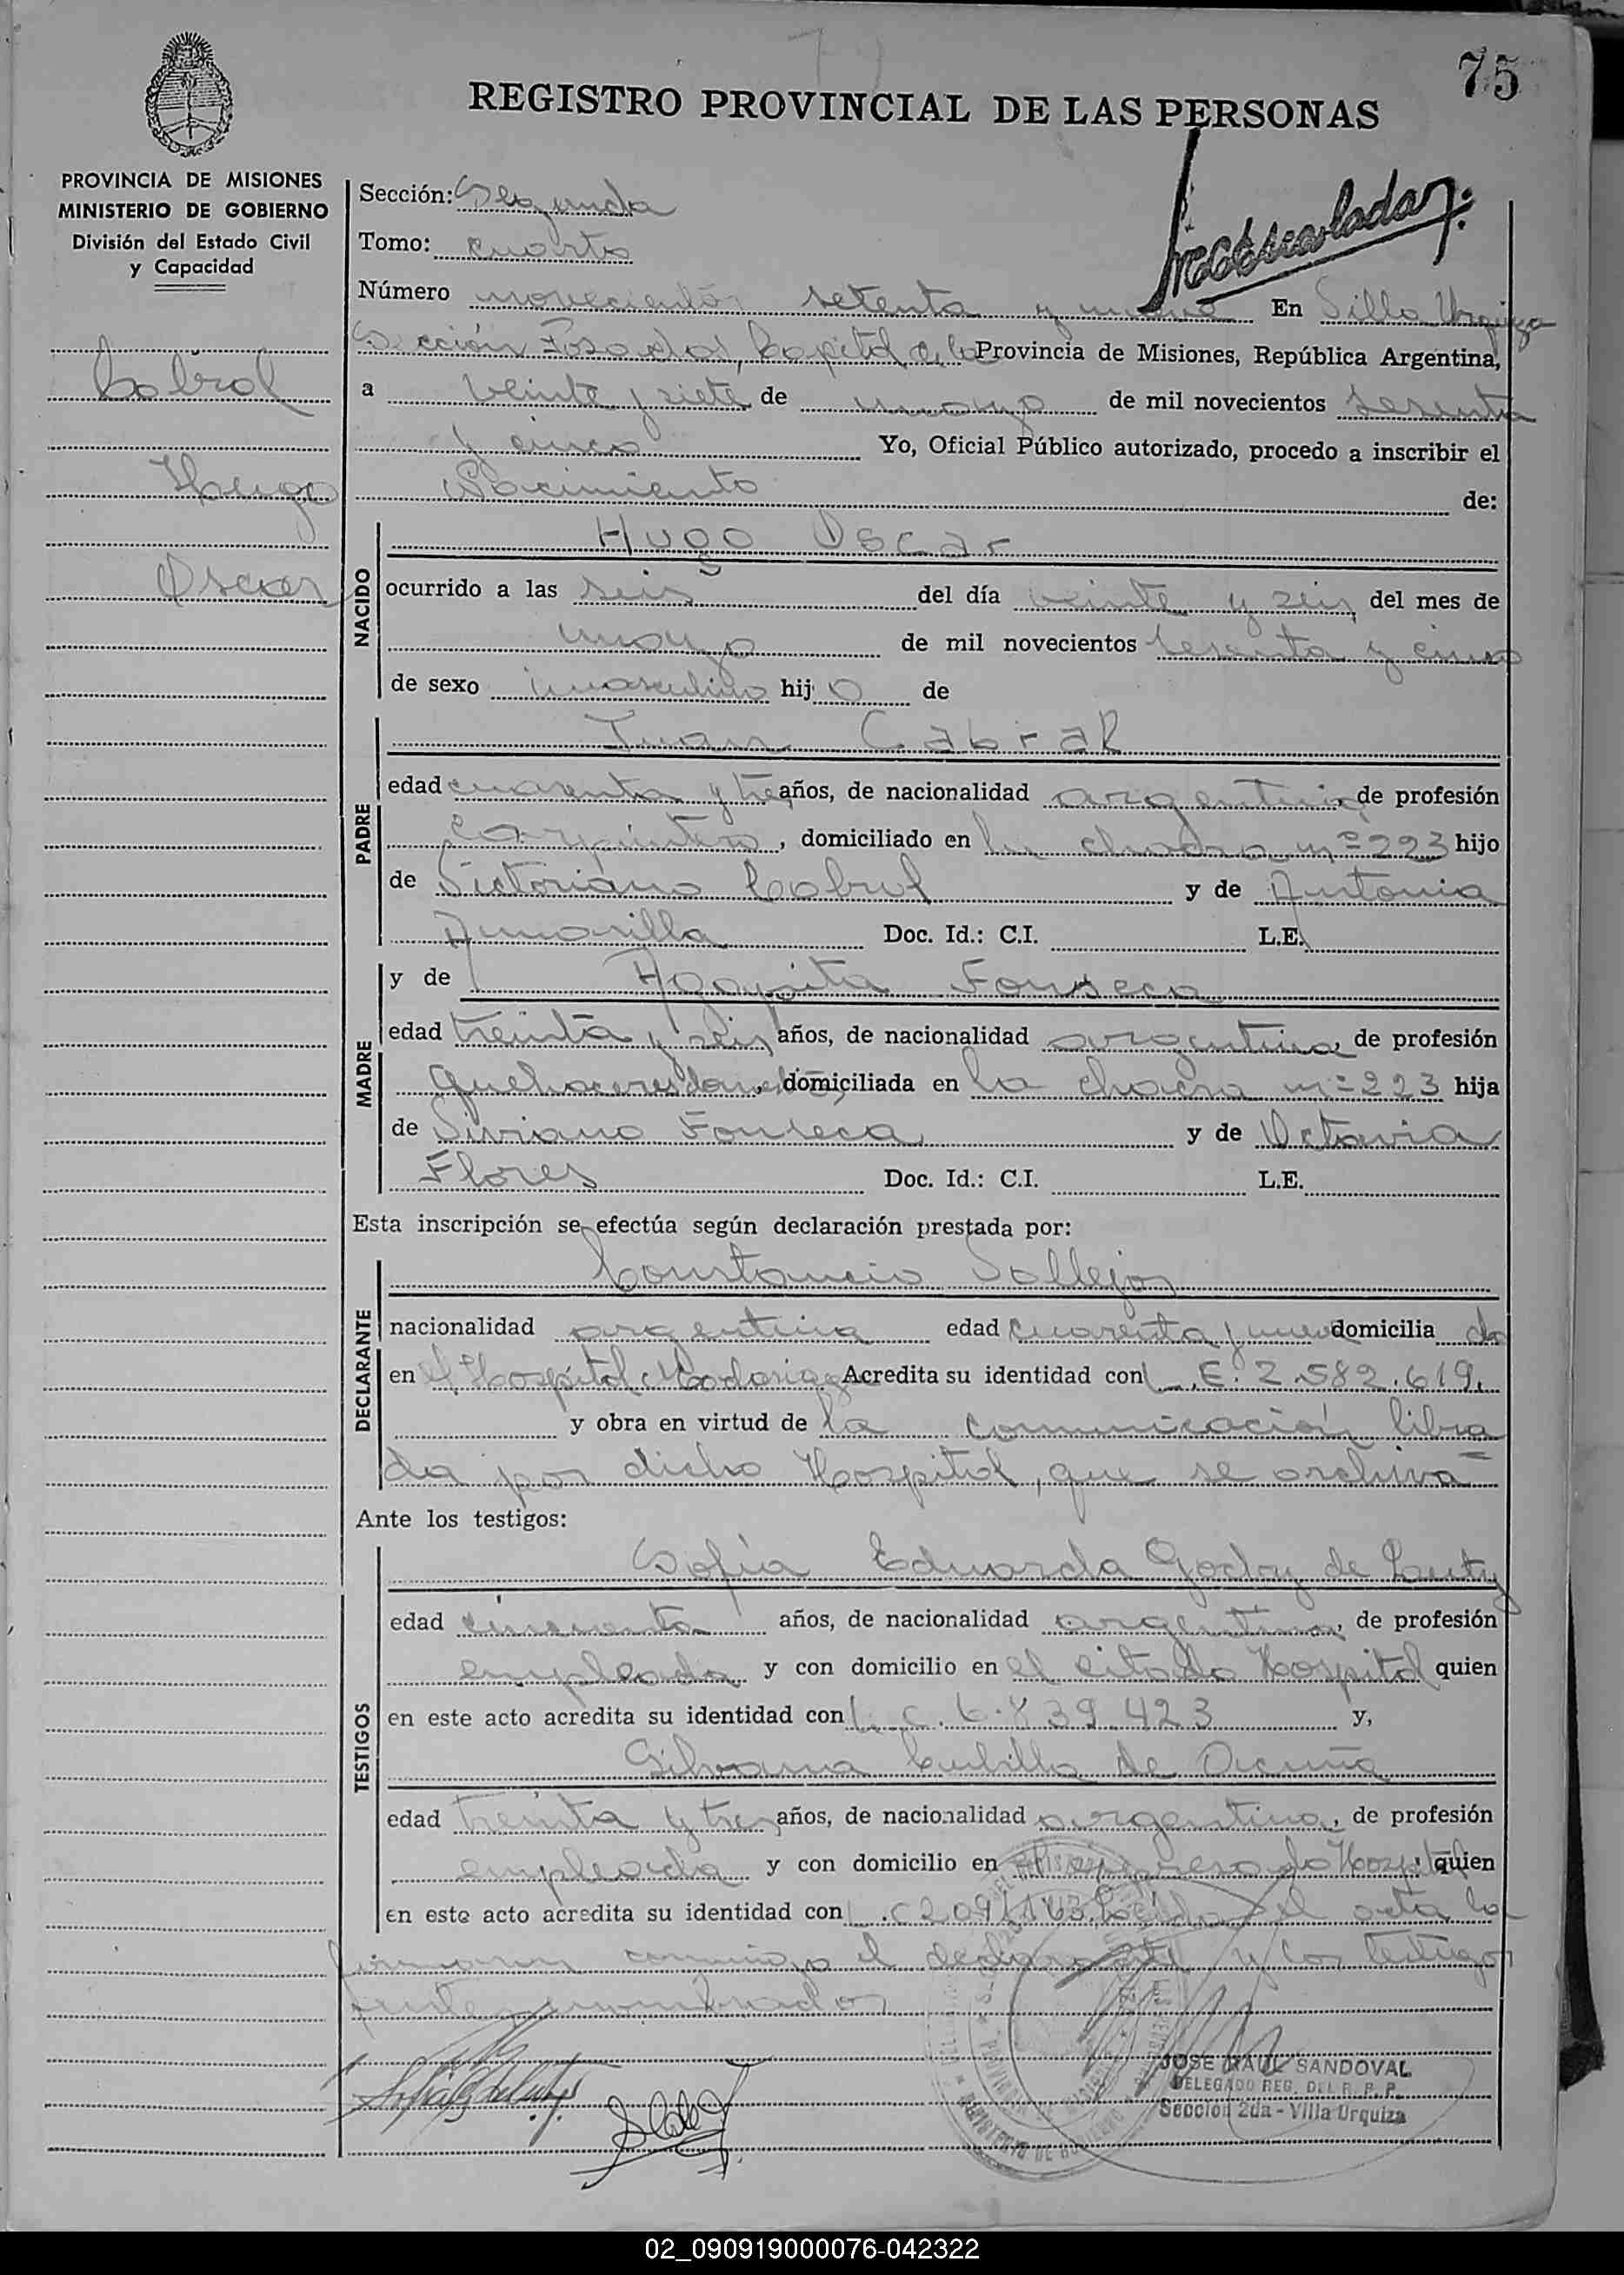 75
REGISTRO PROVINCIAL DE LAS PERSONAS
PROVINCIA DE MISIONES
MINISTERIO DE GOBIERNO
División del Estado Civil
y Capacidad
Cabral
Hugo
Oscar
Sección: Segunda
Tomo: cuarto
Número novecientos setenta y nueve En Villa Urquiza
Sección Posadas, Capital de la Provincia de Misiones, República Argentina,
a veinte y siete de mayo de mil novecientos sesenta
y cinco Yo, Oficial Público autorizado, procedo a inscribir el
Nacimiento de:
NACIDO
Hugo Oscar
ocurrido a las seis del día veinte y seis del mes de
mayo de mil novecientos sesenta y cinco
de sexo masculino hijo de
PADRE
Juan Cabral
edad cuarenta y tres años, de nacionalidad argentina, de profesión
carpintero, domiciliado en la chacra nº 223 hijo
de Victoriano Cabral y de Antonia
Amarilla Doc. Id.: C.I. L.E.
MADRE
y de Agapita Fonseca
edad treinta y seis años, de nacionalidad argentina, de profesión
quehaceres domiciliada en la chacra nº 223 hija
de Fonseca y de Octavia
Flores Doc. Id.: C.I. L.E.
Esta inscripción se efectúa según declaración prestada por:
DECLARANTE
Constancio Vallejos
nacionalidad argentina edad cuarenta y nueve domiciliado
en el Hospital Madariaga Acredita su identidad con L.E. 2.582.619.
y obra en virtud de la comunicación libra
da por dicho Hospital, que se archiva
Ante los testigos:
TESTIGOS
Sofía Eduarda Godoy de
edad cincuenta años, de nacionalidad argentina, de profesión
empleada y con domicilio en el citado Hospital quien
en este acto acredita su identidad con L.C. 6.839.423 y,
Silvana Cubilla de Acuña
edad treinta y tres años, de nacionalidad argentina, de profesión
empleada y con domicilio en el expresado Hospital quien
en este acto acredita su identidad con L.C. Leída el acta la
firman conmigo el declarante y los testigos
nombrados
JOSE RAUL SANDOVAL
DELEGADO REG. DEL R. P. P.
Sección 2da - Villa Urquiza
02_090919000076-042322